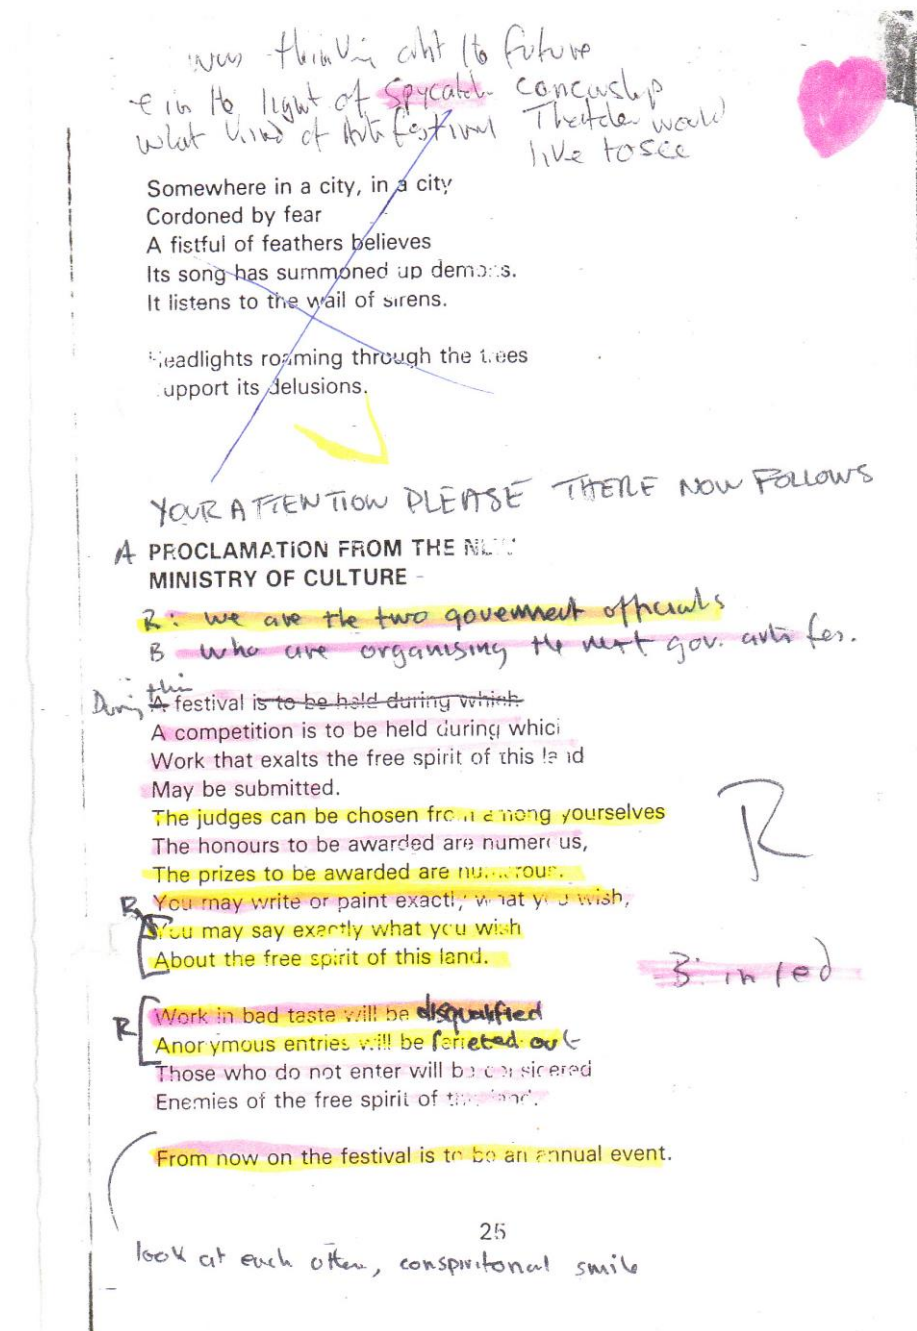 was thinking abt the future
& in the light of Spycatcher censorship
what kind of Arts festival Thatcher would
like to see
Somewhere in a city, in a city
Cordoned by fear
A fistful of feathers believes
Its song has summoned up demons.
It listens to the wail of sirens.
Headlights roaming through the trees
support its delusions.
YOUR ATTENTION PLEASE THERE NOW FOLLOWS
A PROCLAMATION FROM THE NEW
MINISTRY OF CULTURE
R: we are the two government officials
B who are organising the next gov. arts fes.
During this
A festival is to be held during which
A competition is to be held during which
Work that exalts the free spirit of this land
May be submitted.
The judges can be chosen from among yourselves
The honours to be awarded are numerous,
The prizes to be awarded are numerous.
R
R You may write or paint exactly what you wish,
You may say exactly what you wish
About the free spirit of this land.
B: in red
R Work in bad taste will be disqualified
Anonymous entries will be ferreted out
Those who do not enter will be considered
Enemies of the free spirit of the land.
From now on the festival is to be an annual event.
25
look at each other, conspiritorial smile